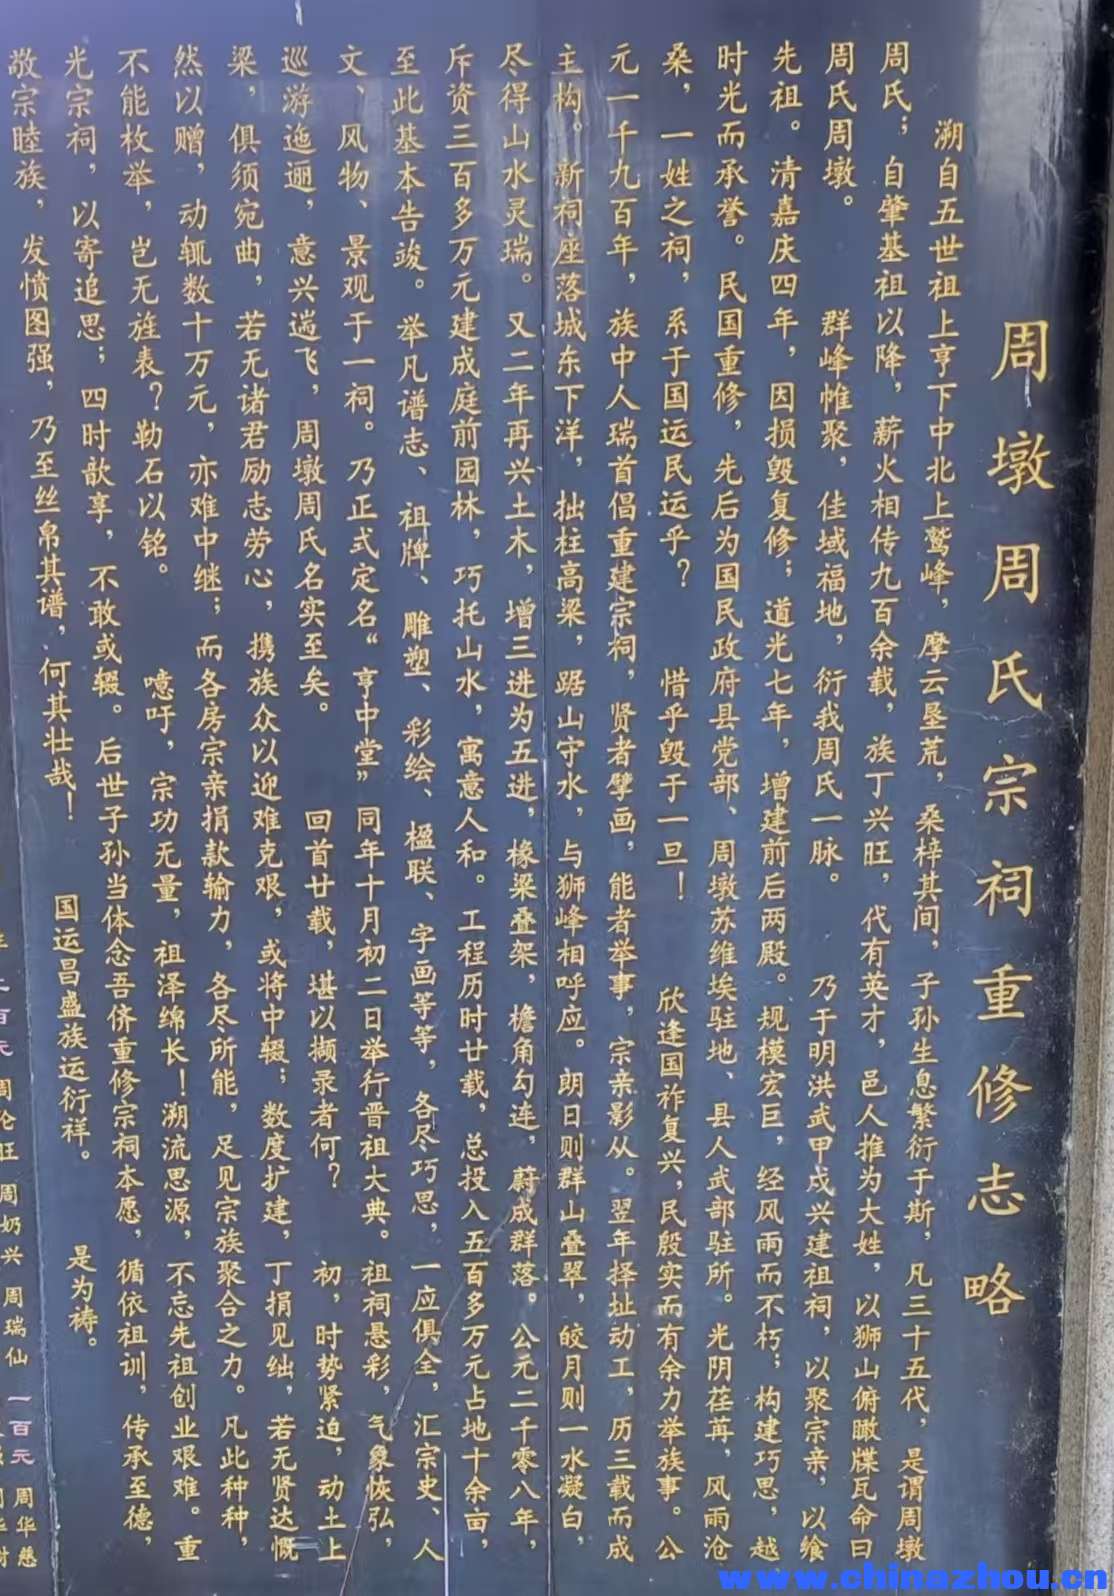 周墩周氏宗祠重修志略
溯自五世祖上亨下中北上鹫峰，摩云垦荒，桑梓其间，子孙生息繁衍于斯，凡三十五代，是谓周墩
周氏；自肇基祖以降，薪火相传九百余载，族丁兴旺，代有英才，邑人推为大姓，以狮山俯瞰牒瓦命曰
周氏周墩。 群峰帷聚，佳域福地，衍我周氏一脉。 乃于明洪武甲戌兴建祖祠，以聚宗亲，以飨
先祖。清嘉庆四年，因损毁复修；道光七年，增建前后两殿。规模宏巨，经风雨而不朽；构建巧思，越
时光而承誉。民国重修，先后为国民政府县党部、周墩苏维埃驻地、县人武部驻所。光阴荏苒，风雨沧
桑，一姓之祠，系于国运民运乎？ 惜乎毁于一旦！ 欣逢国祚复兴，民殷实而有余力举族事。公
元一千九百年，族中人瑞首倡重建宗祠，贤者擘画，能者举事，宗亲影从。翌年择址动工，历三载而成
主构。新祠座落城东下洋，拙柱高梁，踞山守水，与狮峰相呼应。朗日则群山叠翠，皎月则一水凝白，
尽得山水灵瑞。又二年再兴土木，增三进为五进，椽梁叠架，檐角勾连，蔚成群落。公元二千零八年，
斥资三百多万元建成庭前园林，巧托山水，寓意人和。工程历时廿载，总投入五百多万元占地十余亩，
至此基本告竣。举凡谱志、祖牌、雕塑、彩绘、楹联、字画等等，各尽巧思，一应俱全，汇宗史、人
文、风物、景观于一祠。乃正式定名“亨中堂”同年十月初二日举行晋祖大典。祖祠悬彩，气象恢弘，
巡游迤逦，意兴遄飞，周墩周氏名实至矣。 回首廿载，堪以撷录者何？ 初，时势紧迫，动土上
梁，俱须宛曲，若无诸君励志劳心，携族众以迎难克艰，或将中辍；数度扩建，丁捐见绌，若无贤达慨
然以赠，动辄数十万元，亦难中继；而各房宗亲捐款输力，各尽所能，足见宗族聚合之力。凡此种种，
不能枚举，岂无旌表？勒石以铭。 噫吁，宗功无量，祖泽绵长！溯流思源，不忘先祖创业艰难。重
光宗祠，以寄追思；四时歆享，不敢或辍。后世子孙当体念吾侪重修宗祠本愿，循依祖训，传承至德，
敬宗睦族，发愤图强，乃至丝帛其谱，何其壮哉！ 国运昌盛族运衍祥。 是为祷。
百元 周伦旺 周奶兴 周瑞仙 一百元 周华慈
www.chinazhou.cn